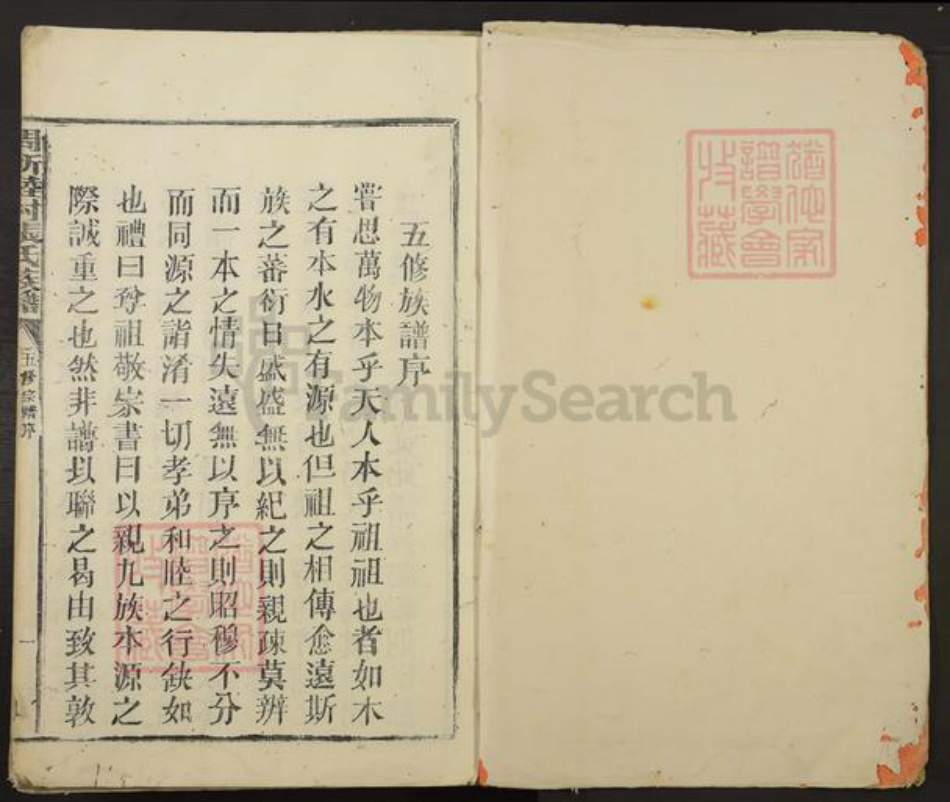 五修族譜序
嘗思萬物本乎天人本乎祖祖也者如木
之有本水之有源也但祖之相傳愈遠斯
族之蕃衍日盛盛無以紀之則親疎莫辨
而一本之情失遠無以序之則昭穆不分
而同源之誼淆一切孝弟和睦之行缺如
也禮曰尊祖敬宗書曰以親九族本源之
際誠重之也然非譜以聯之曷由致其敦
張氏族譜
五修宗譜序
一
猶他家
譜學會
收藏
FamilySearch